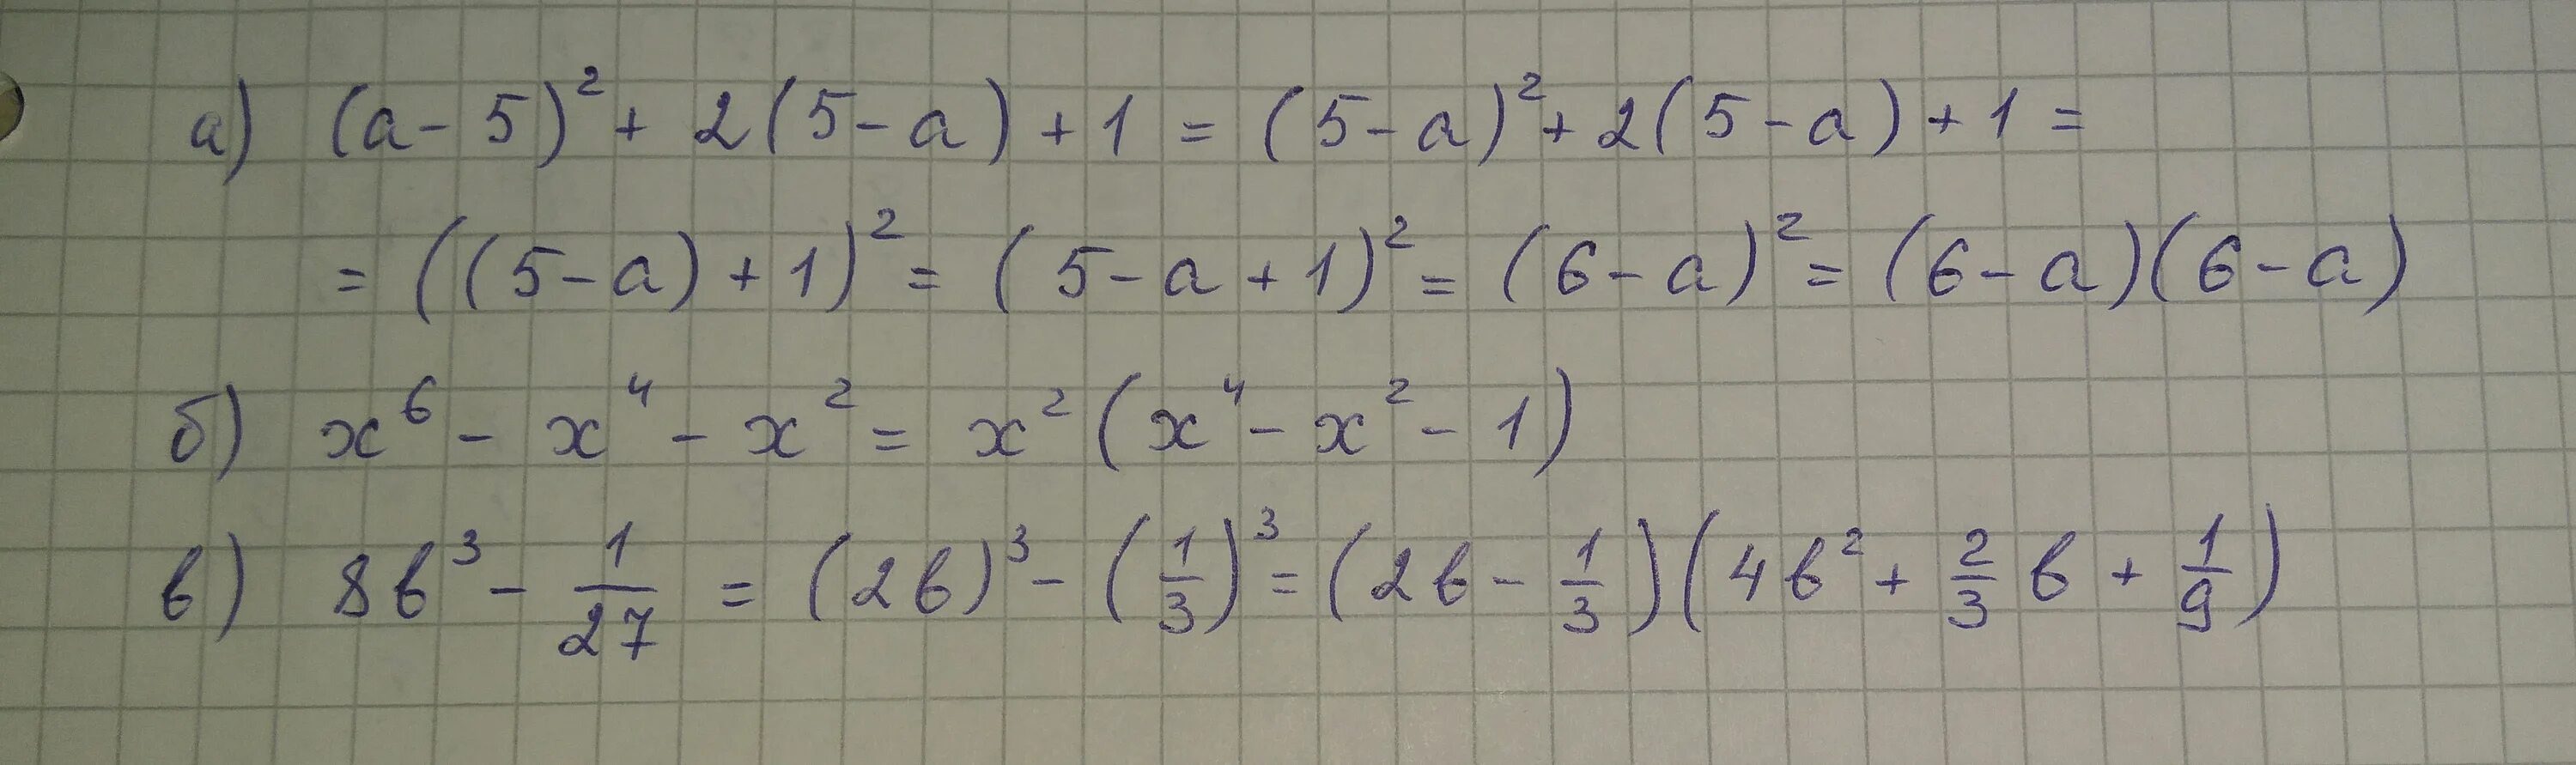 а) (a - 5)² + 2(5 - a) + 1 = (5 - a)² + 2(5 - a) + 1 =
= ((5 - a) + 1)² = (5 - a + 1)² = (6 - a)² = (6 - a)(6 - a)
б) x⁶ - x⁴ - x² = x²(x⁴ - x² - 1)
в) 8b³ - 1/27 = (2b)³ - (1/3)³ = (2b - 1/3)(4b² + 2/3 b + 1/9)